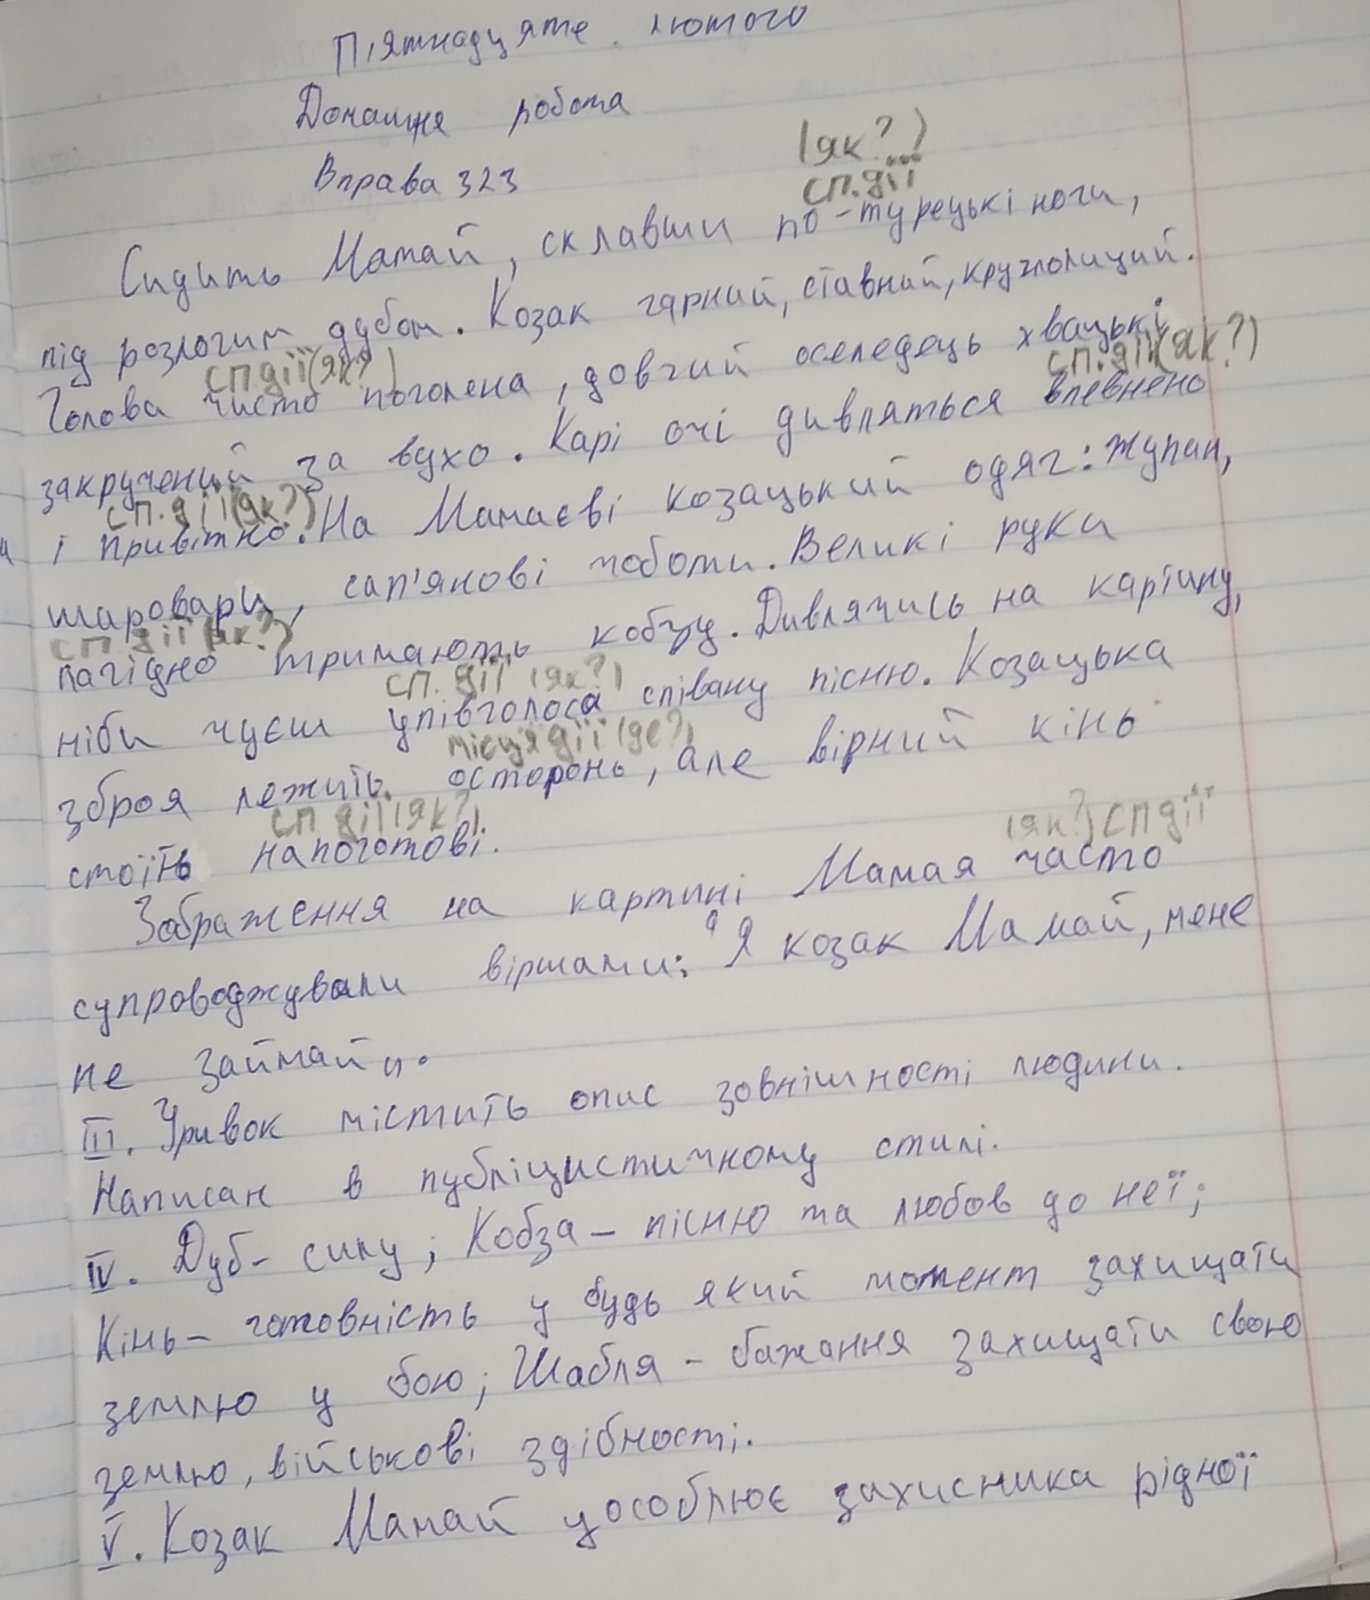 П'ятнадцяте лютого
Домашня робота
(як?)
Вправа 323
сп.дії
Сидить Мамай, склавши по-турецькі ноги,
під розлогим дубом. Козак гарний, ставний, круглолиций.
сп дії (як?)
Голова чисто поголена, довгий оселедець хвацькі
сп. дії (як?)
закручений за вухо. Карі очі дивляться впевнено
сп. дії (як?)
і привітно. На Мамаєві козацький одяг: жупан,
шаровари, сап'янові чоботи. Великі руки
сп дії (як?)
лагідно тримають кобзу. Дивлячись на картину,
сп. дії (як?)
ніби чуєш упівголоса співану пісню. Козацька
місця дії (де?)
зброя лежить осторонь, але вірний кінь
сп дії (як?)
стоїть напоготові.
(як?) сп дії
Зображення на картині Мамая часто
супроводжували віршами: "Я козак Мамай, мене
не займай".
III. Уривок містить опис зовнішності людини.
Написан в публіцистичному стилі.
IV. Дуб - силу; Кобза - пісню та любов до неї;
Кінь - готовність у будь який момент захищати
землю у бою; Шабля - бажання захищати свою
землю, військові здібності.
V. Козак Мамай уособлює захисника рідної